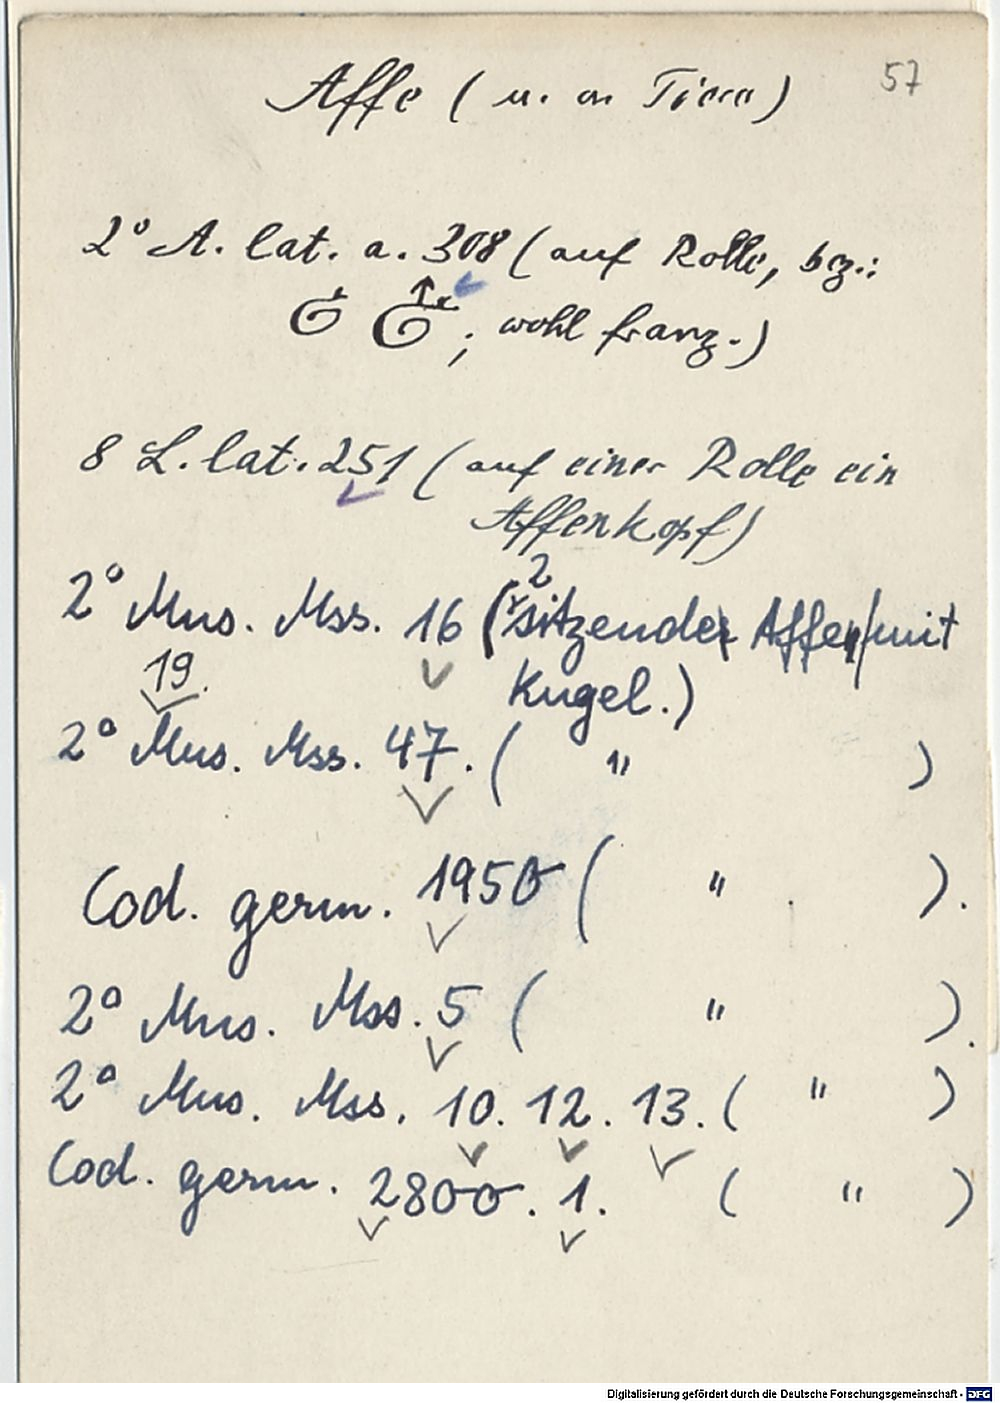 57
Affe (u. a. Tiere)
2° A. lat. a. 308 (auf Rolle, bez.:
G G; wohl franz.)
8 L. lat. 251 (auf einer Rolle ein
Affenkopf)
2
2° Mus. Mss. 16 (sitzende Affen mit
19. Kugel.)
2° Mus. Mss. 47. ( " )
Cod. germ. 1950 ( " ).
2° Mus. Mss. 5 ( " ).
2° Mus. Mss. 10. 12. 13. ( " )
Cod. germ. 2800. 1. ( " )
Digitalisierung gefördert durch die Deutsche Forschungsgemeinschaft - DFG